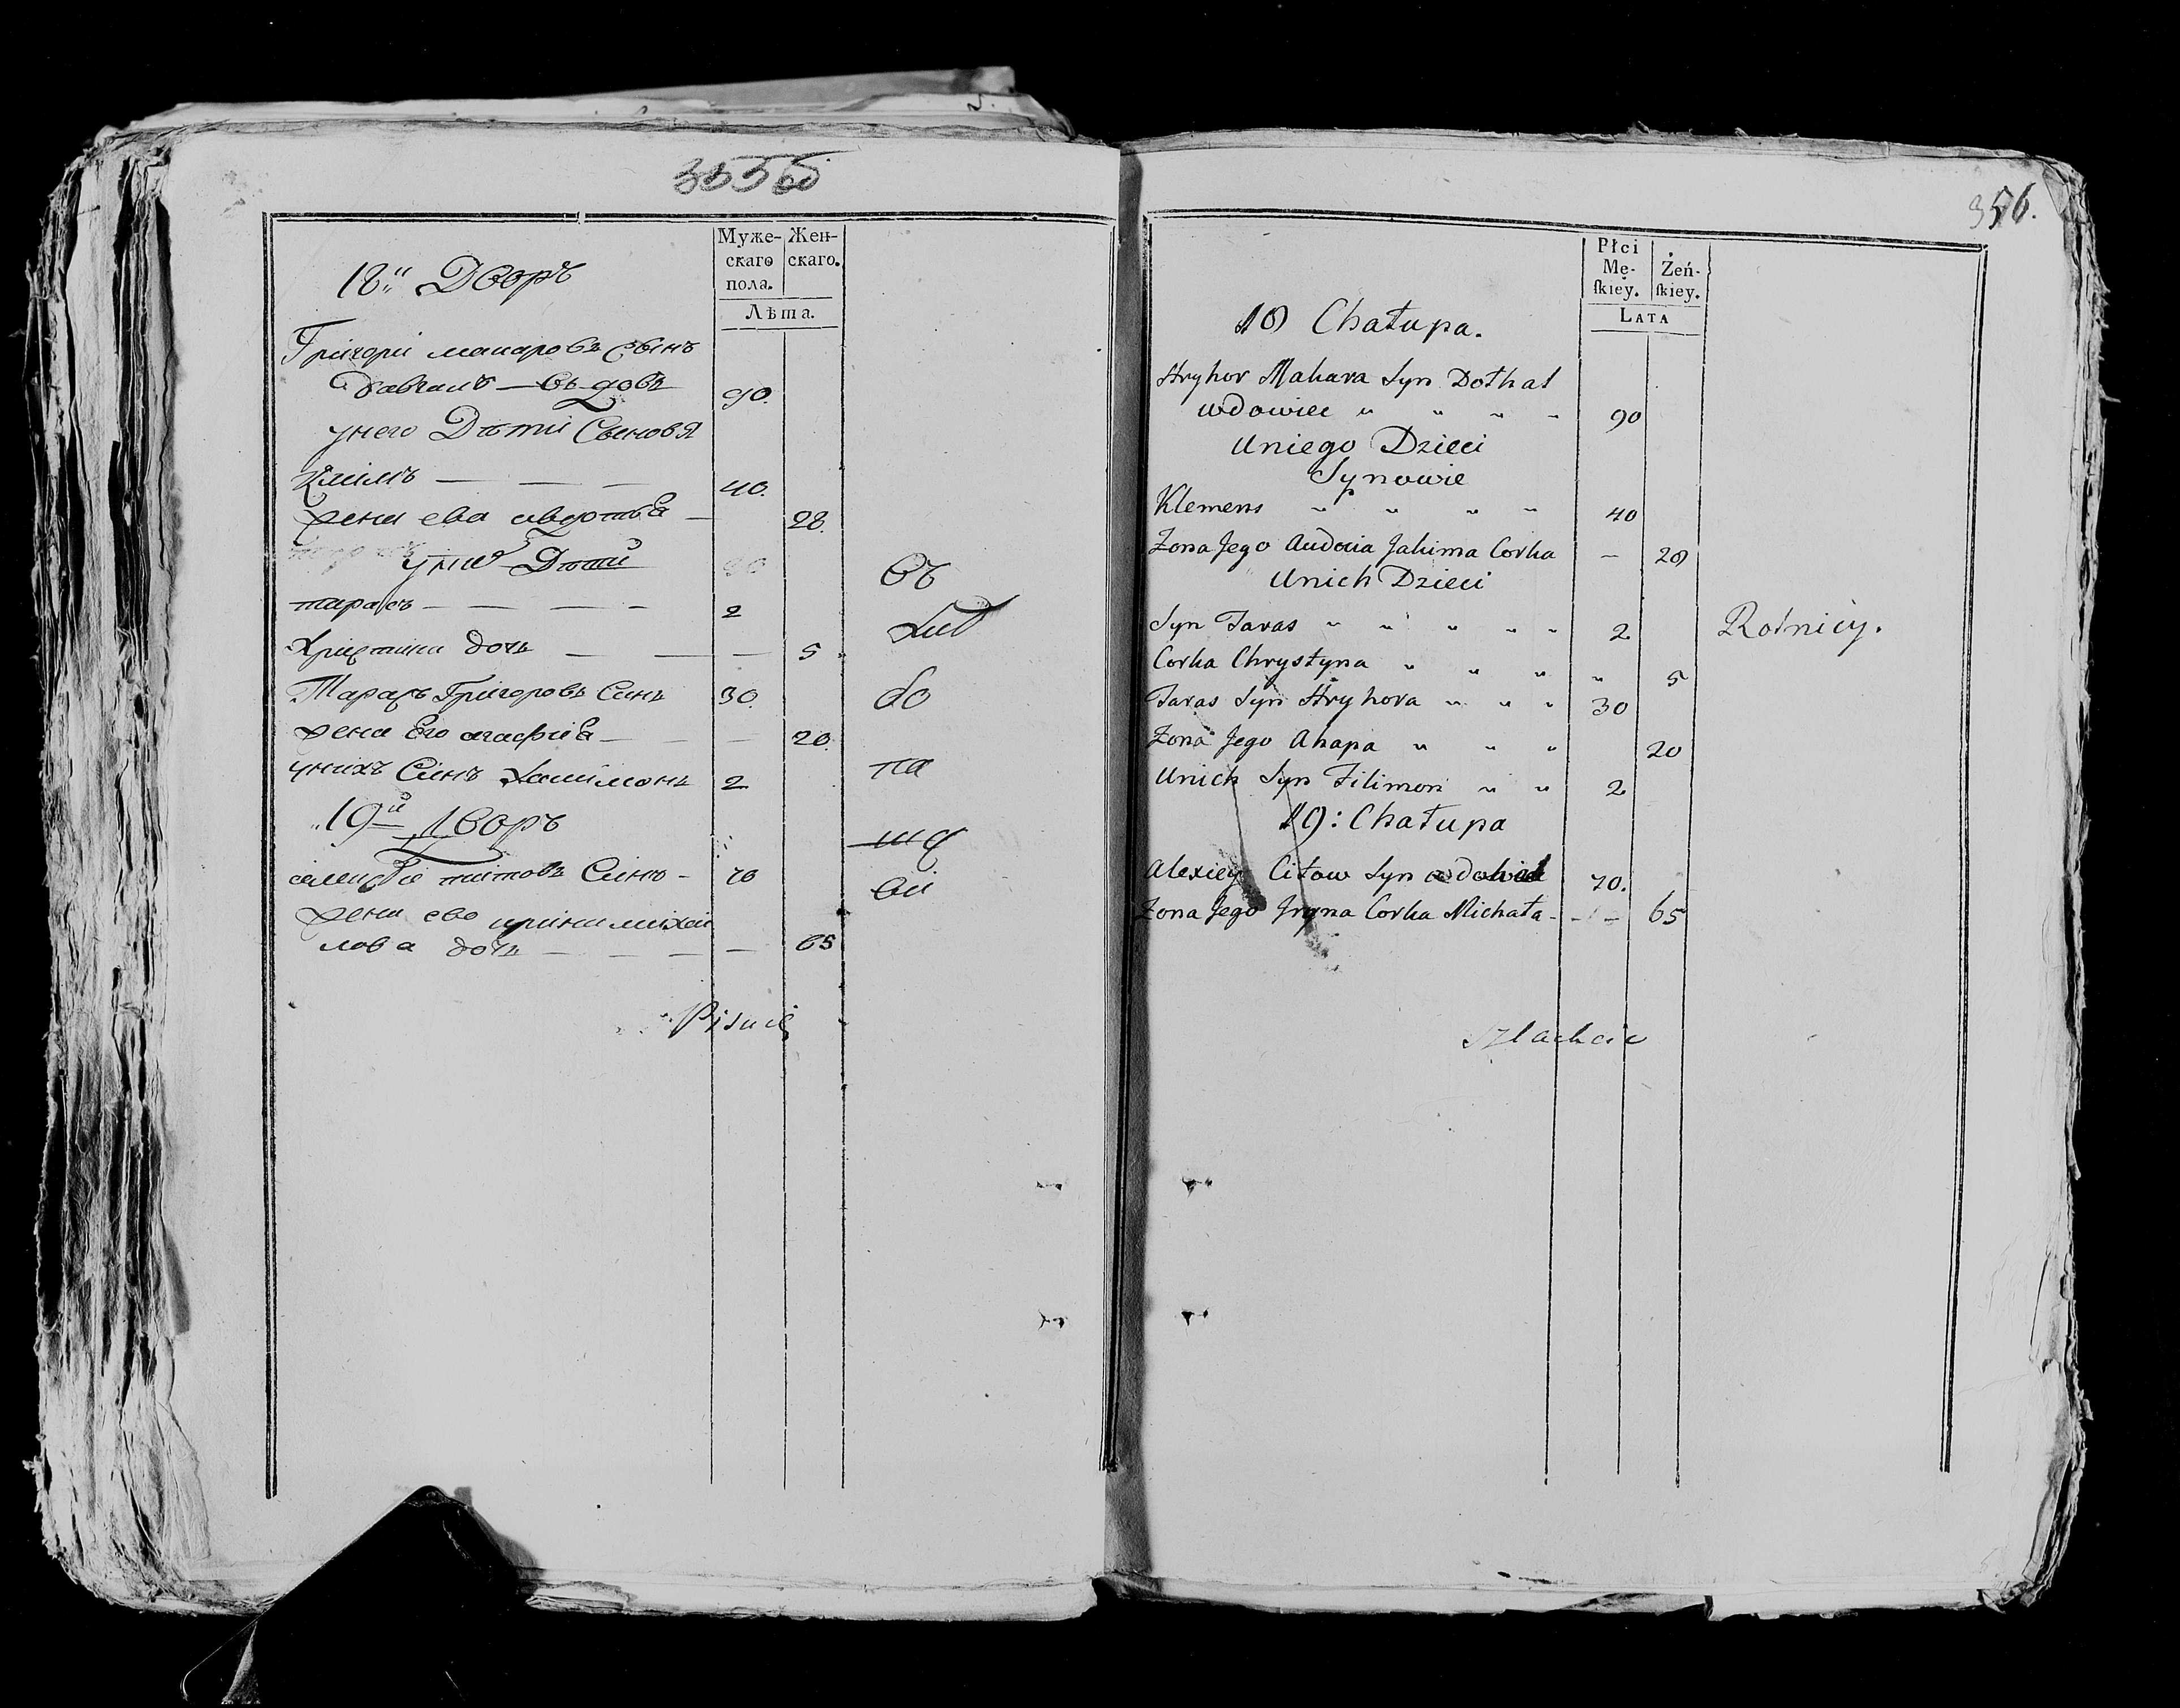 355 об
Муже-
скаго
пола.
Жен-
скаго.
Лѣта.
18й Дворъ
Григори макаровъ Сынъ
Довгаль — вдовъ 90.
унего Дѣти Сыновя
Климъ — — — 40.
жена ева — 28.
Дѣти
тарасъ — — — — 2
Христина дочь — — — 5
Тарасъ Григоровъ Синъ 30.
жена Его агафия — — — 20.
унихъ Синъ 2
19й Дворъ
титовъ Синъ - 70
жена ево ирина михаи
лова дочь — — — — 65
въ
Хлѣ
бо
па
ше
ви
Pisaię
356.
Płci
Mę-
ſkiey.
Żeń-
ſkiey.
Lata
18 Chałupa.
Hryhor Makara Syn Dothal
wdowiec „ „ „ „ 90
Uniego Dzieci
Synowie
Klemens „ „ „ „ 40
Zona Jego Audocia Jakima Corka — 28
Unich Dzieci
Syn Taras „ „ „ „ „ 2
Corka Chrystyna „ „ „ „ 5
Taras Syn Hryhora „ „ „ 30
Zona Jego Ahapa „ „ „ 20
Unich Syn Filimon „ „ 2
19: Chałupa
Alexiey Citow Syn 70.
Zona Jego Jryna Corka Michała - - - 65
Rolnicy.
Szlachcic